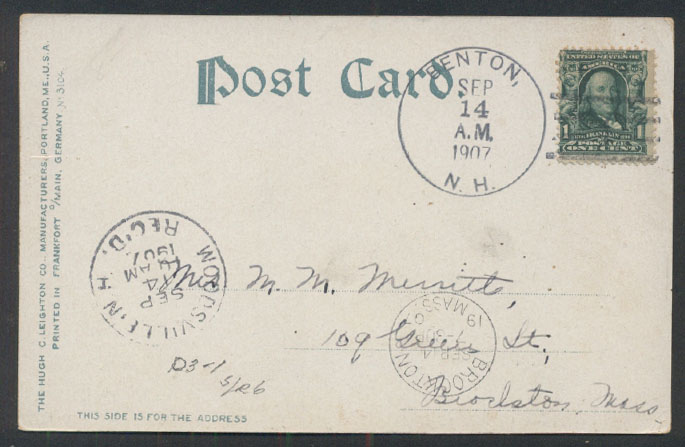 THE HUGH C. LEIGHTON CO., MANUFACTURERS, PORTLAND, ME., U.S.A.
PRINTED IN FRANKFORT o/MAIN, GERMANY. No 3104
Post Card.
BENTON,
SEP
14
A.M.
1907
N. H.
UNITED STATES OF AMERICA
1
FRANKLIN
1
POSTAGE
ONE CENT
WOODSVILLE N H
SEP
14
AM
1907
REC'D.
M. M. Merritt,
109 Green St,
Brockton, Mass
BROCKTON
SEP 14
19 MASS 07
D3-1
5/26
THIS SIDE IS FOR THE ADDRESS